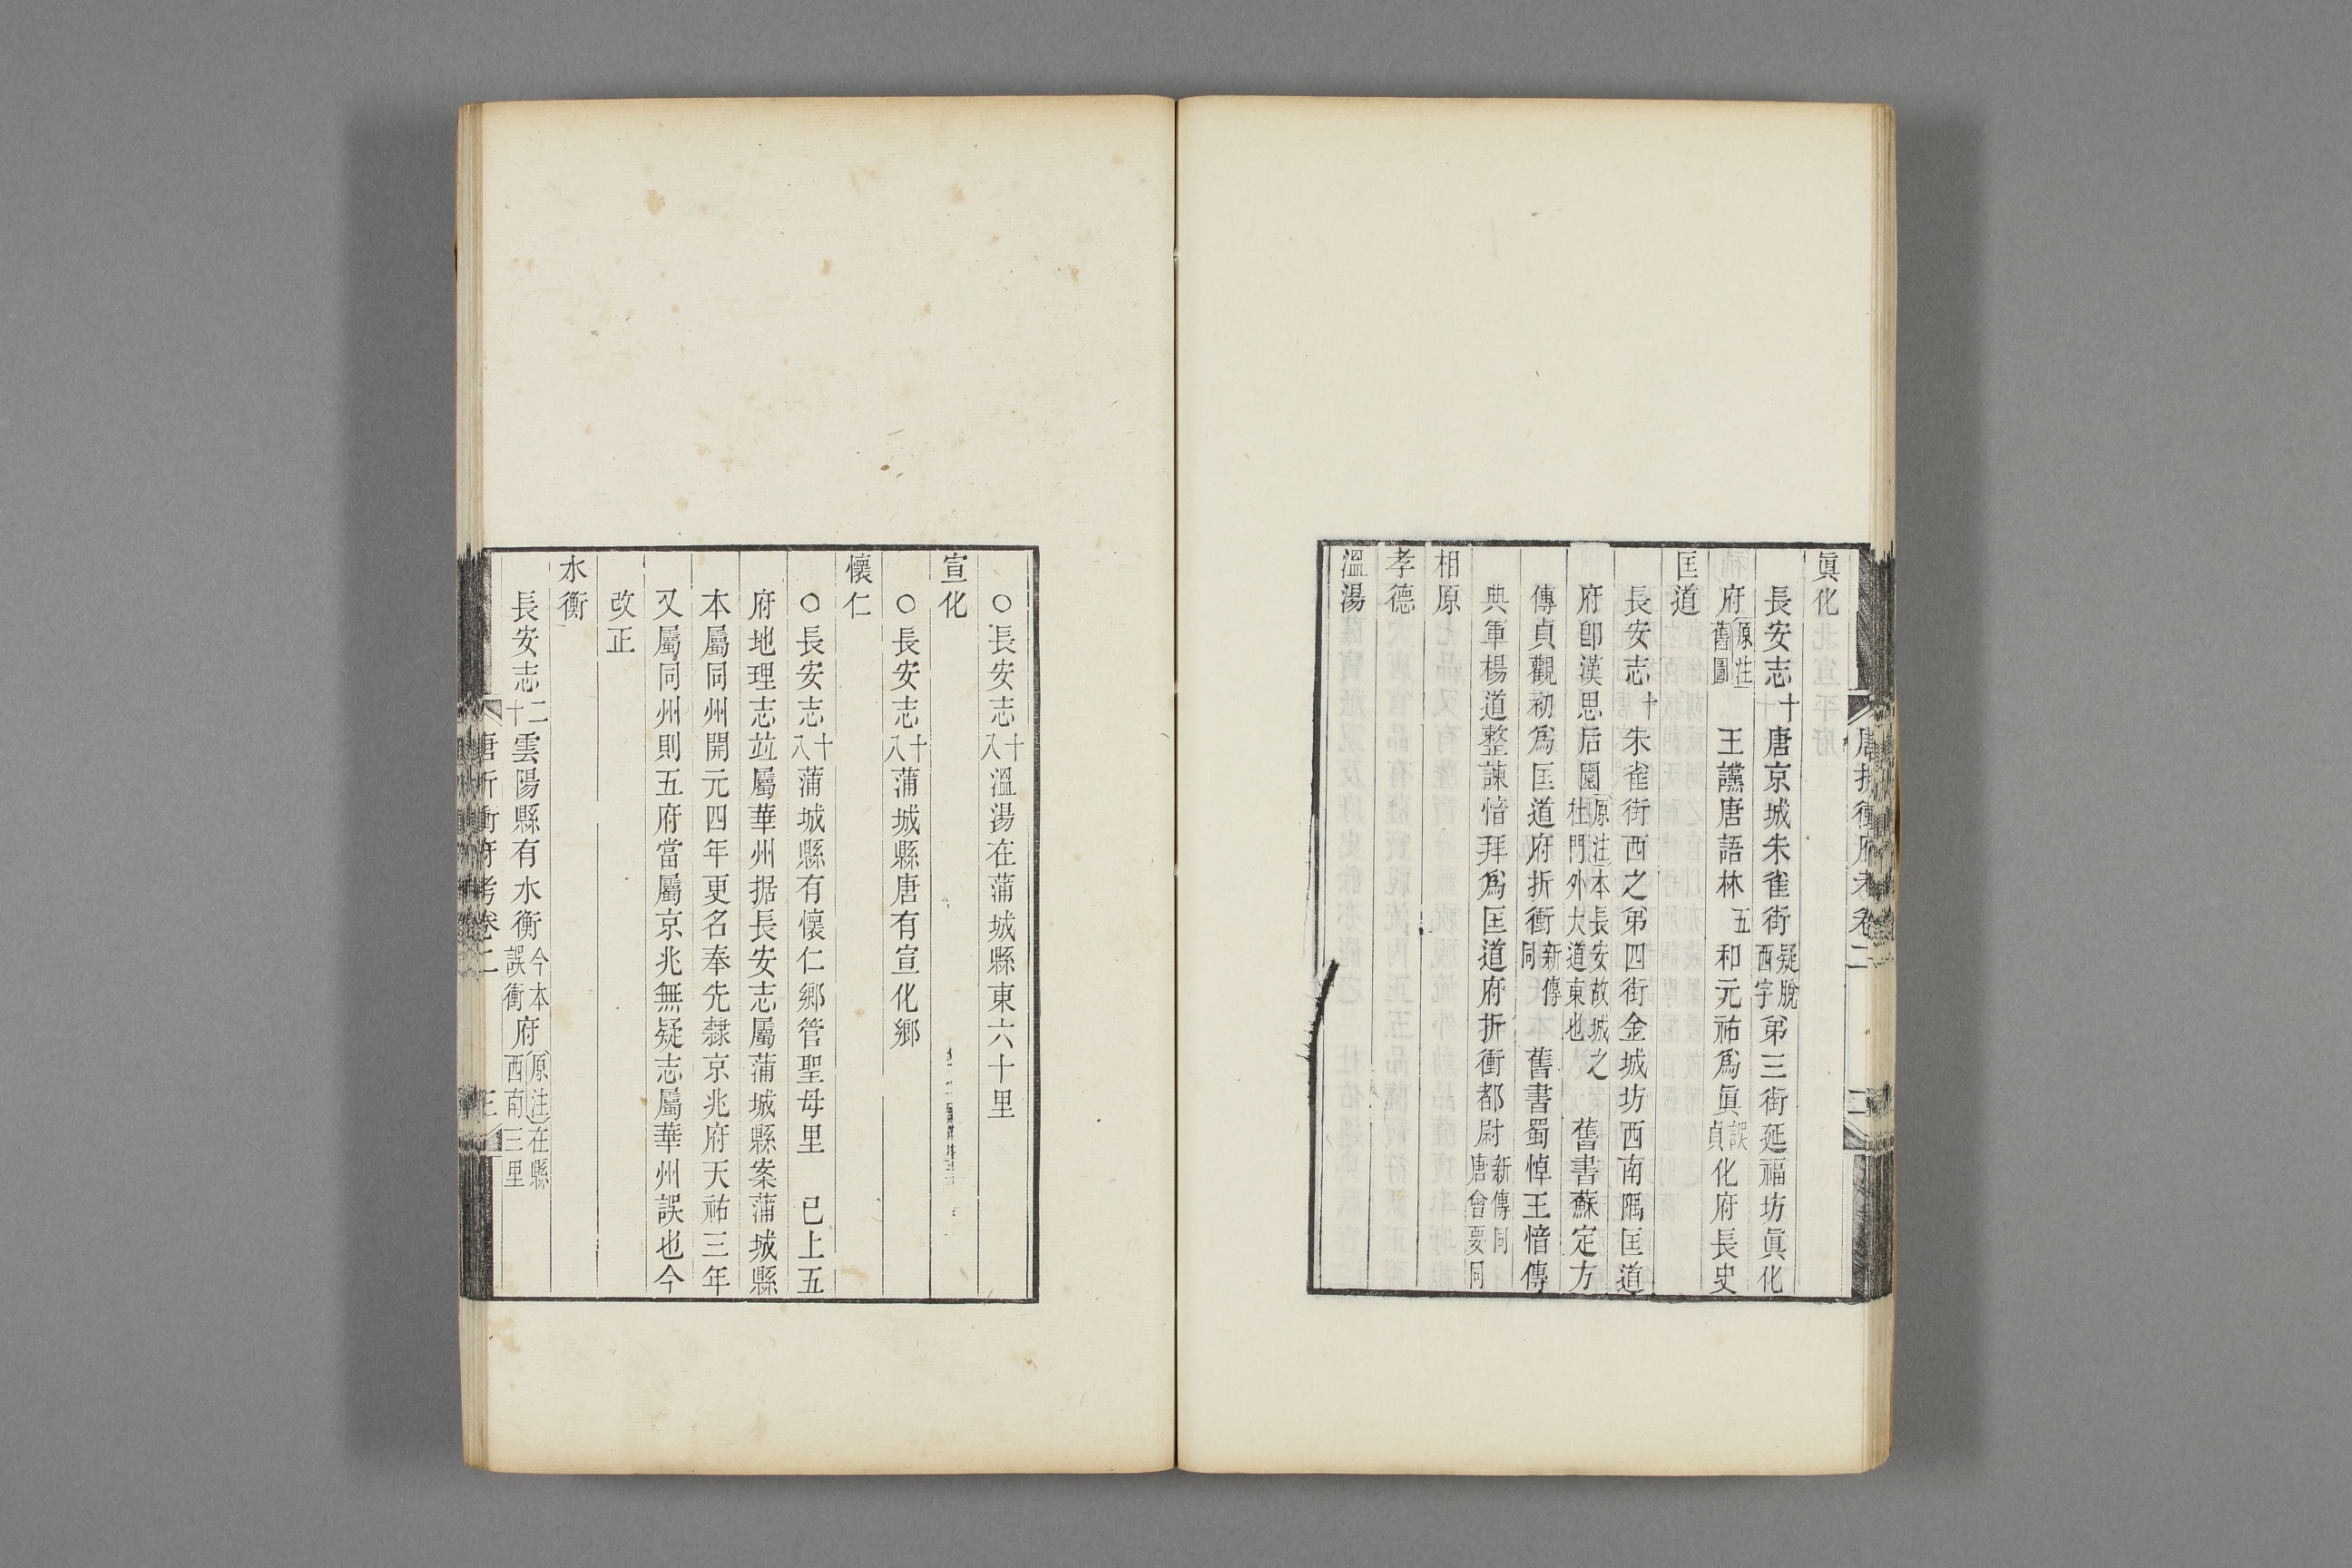 唐折衝府考卷二 二
眞化
長安志十唐京城朱雀街疑脫西字弟三街延福坊眞化
府原注舊圖 王讜唐語林五和元祐爲眞誤貞化府長史
匡道
長安志十朱雀街西之弟四街金城坊西南隅匡道
府卽漢思后園原注本長安故城之杜門外大道東也 舊書蘇定方
傳貞觀初爲匡道府折衝新傳同 舊書蜀悼王愔傳
典軍楊道整諫愔拜爲匡道府折衝都尉新傳同唐會要同
相原
孝德
溫湯
○長安志十八溫湯在蒲城縣東六十里
宣化
○長安志十八蒲城縣唐有宣化鄉
懷仁
○長安志十八蒲城縣有懷仁鄉管聖母里 已上五
府地理志竝屬華州据長安志屬蒲城縣案蒲城縣
本屬同州開元四年更名奉先隸京兆府天祐三年
又屬同州則五府當屬京兆無疑志屬華州誤也今
改正
水衡
長安志十二雲陽縣有水衡今本誤衝府原注在縣西南三里
唐折衝府考卷二 三